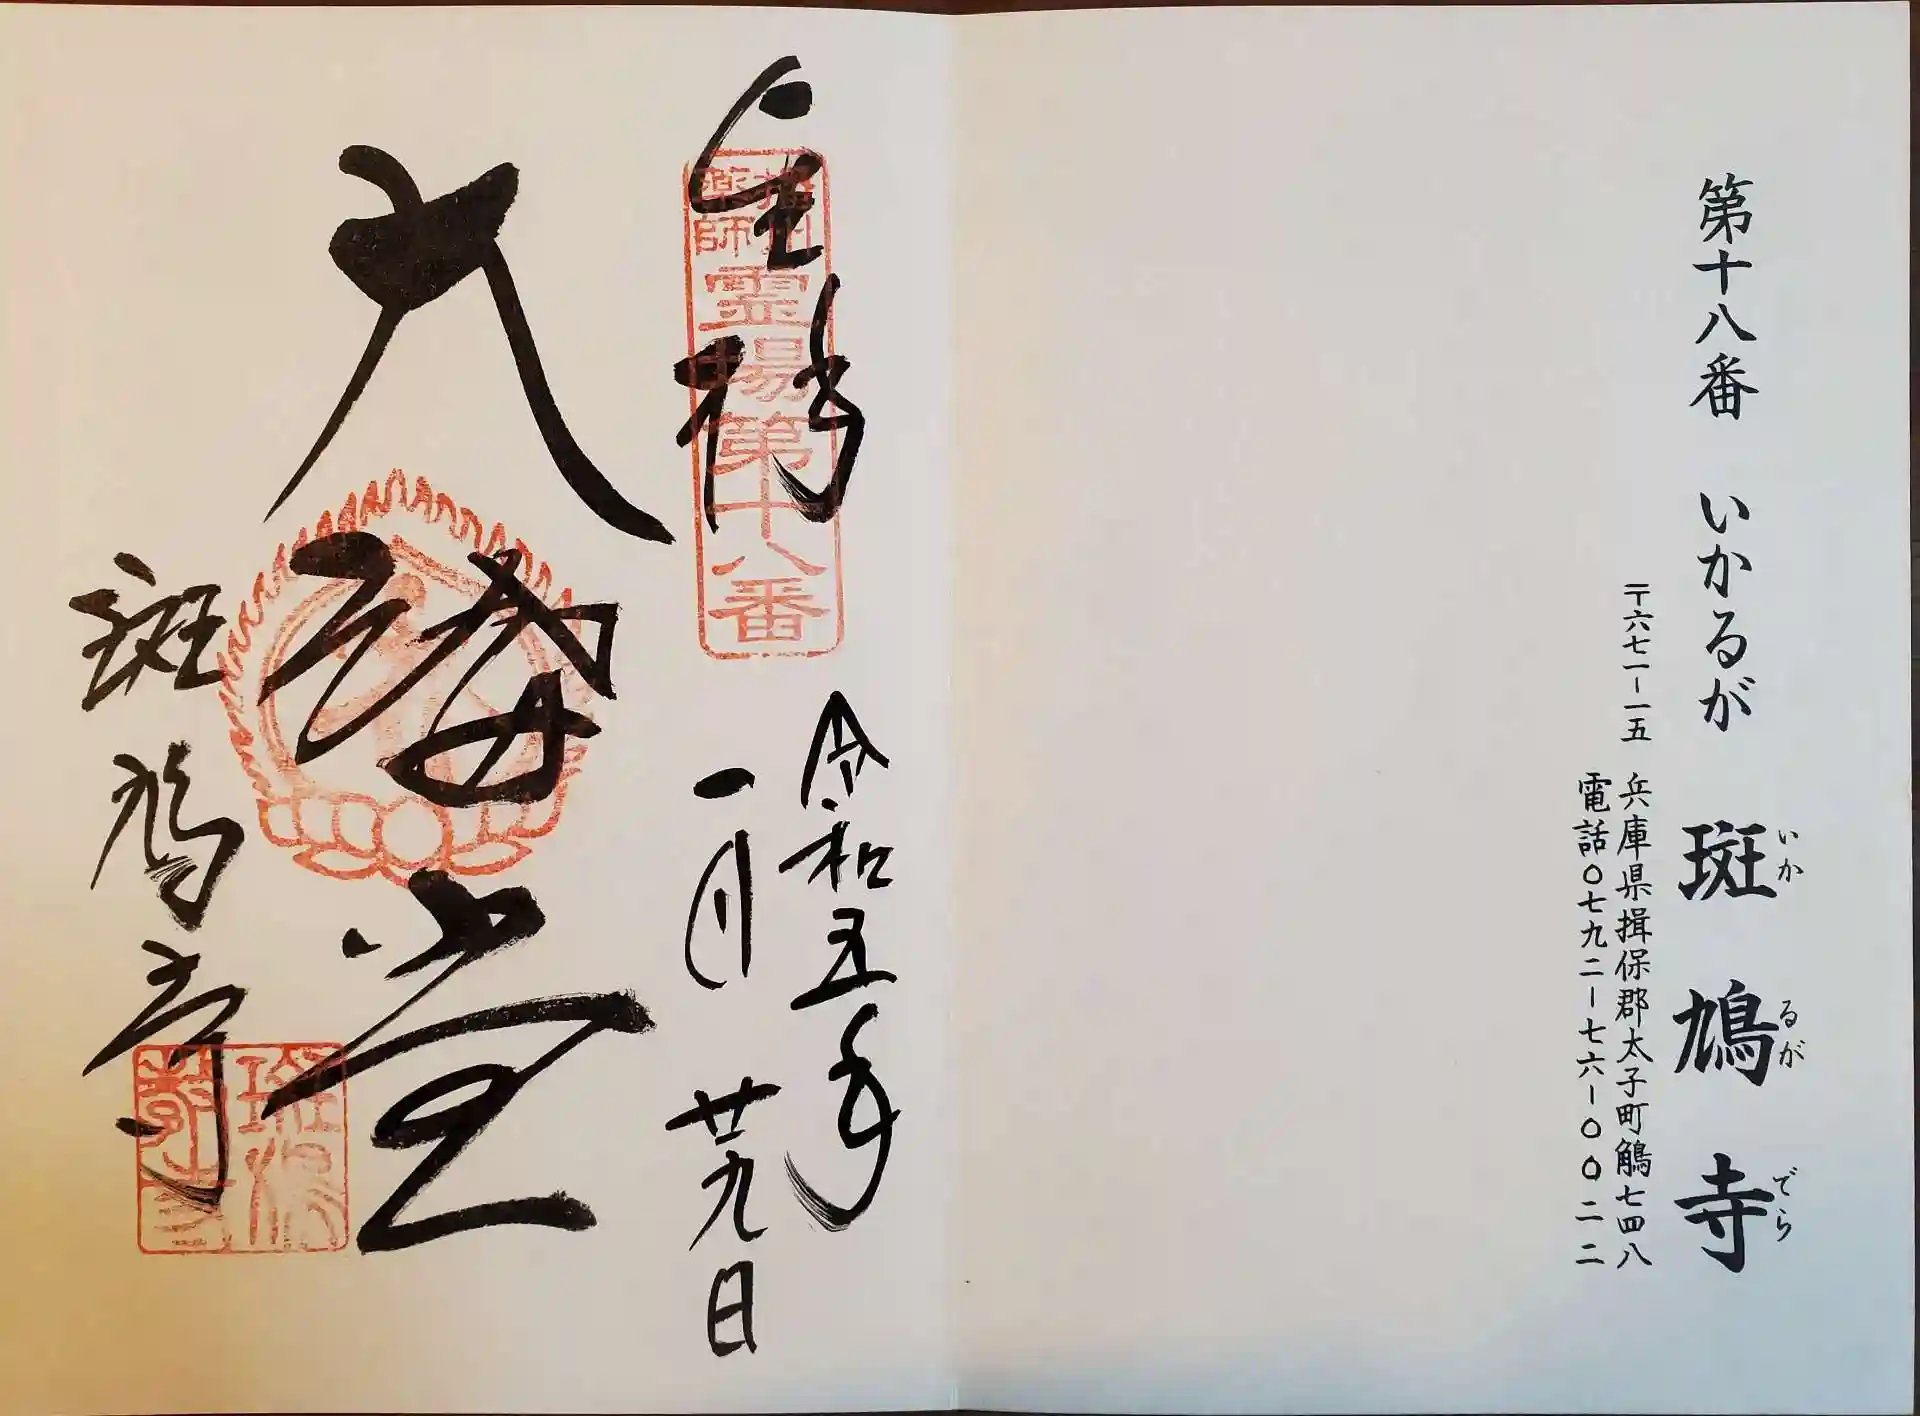 第十八番 いかるが 斑鳩寺
いかるがでら
〒六七一-一一五 兵庫県揖保郡太子町鵤七四八
電話〇七九二-七六-〇〇二二
令和五年
一月廿九日
奉拝
播州薬師霊場第十八番
大講堂
斑鳩寺
斑鳩寺